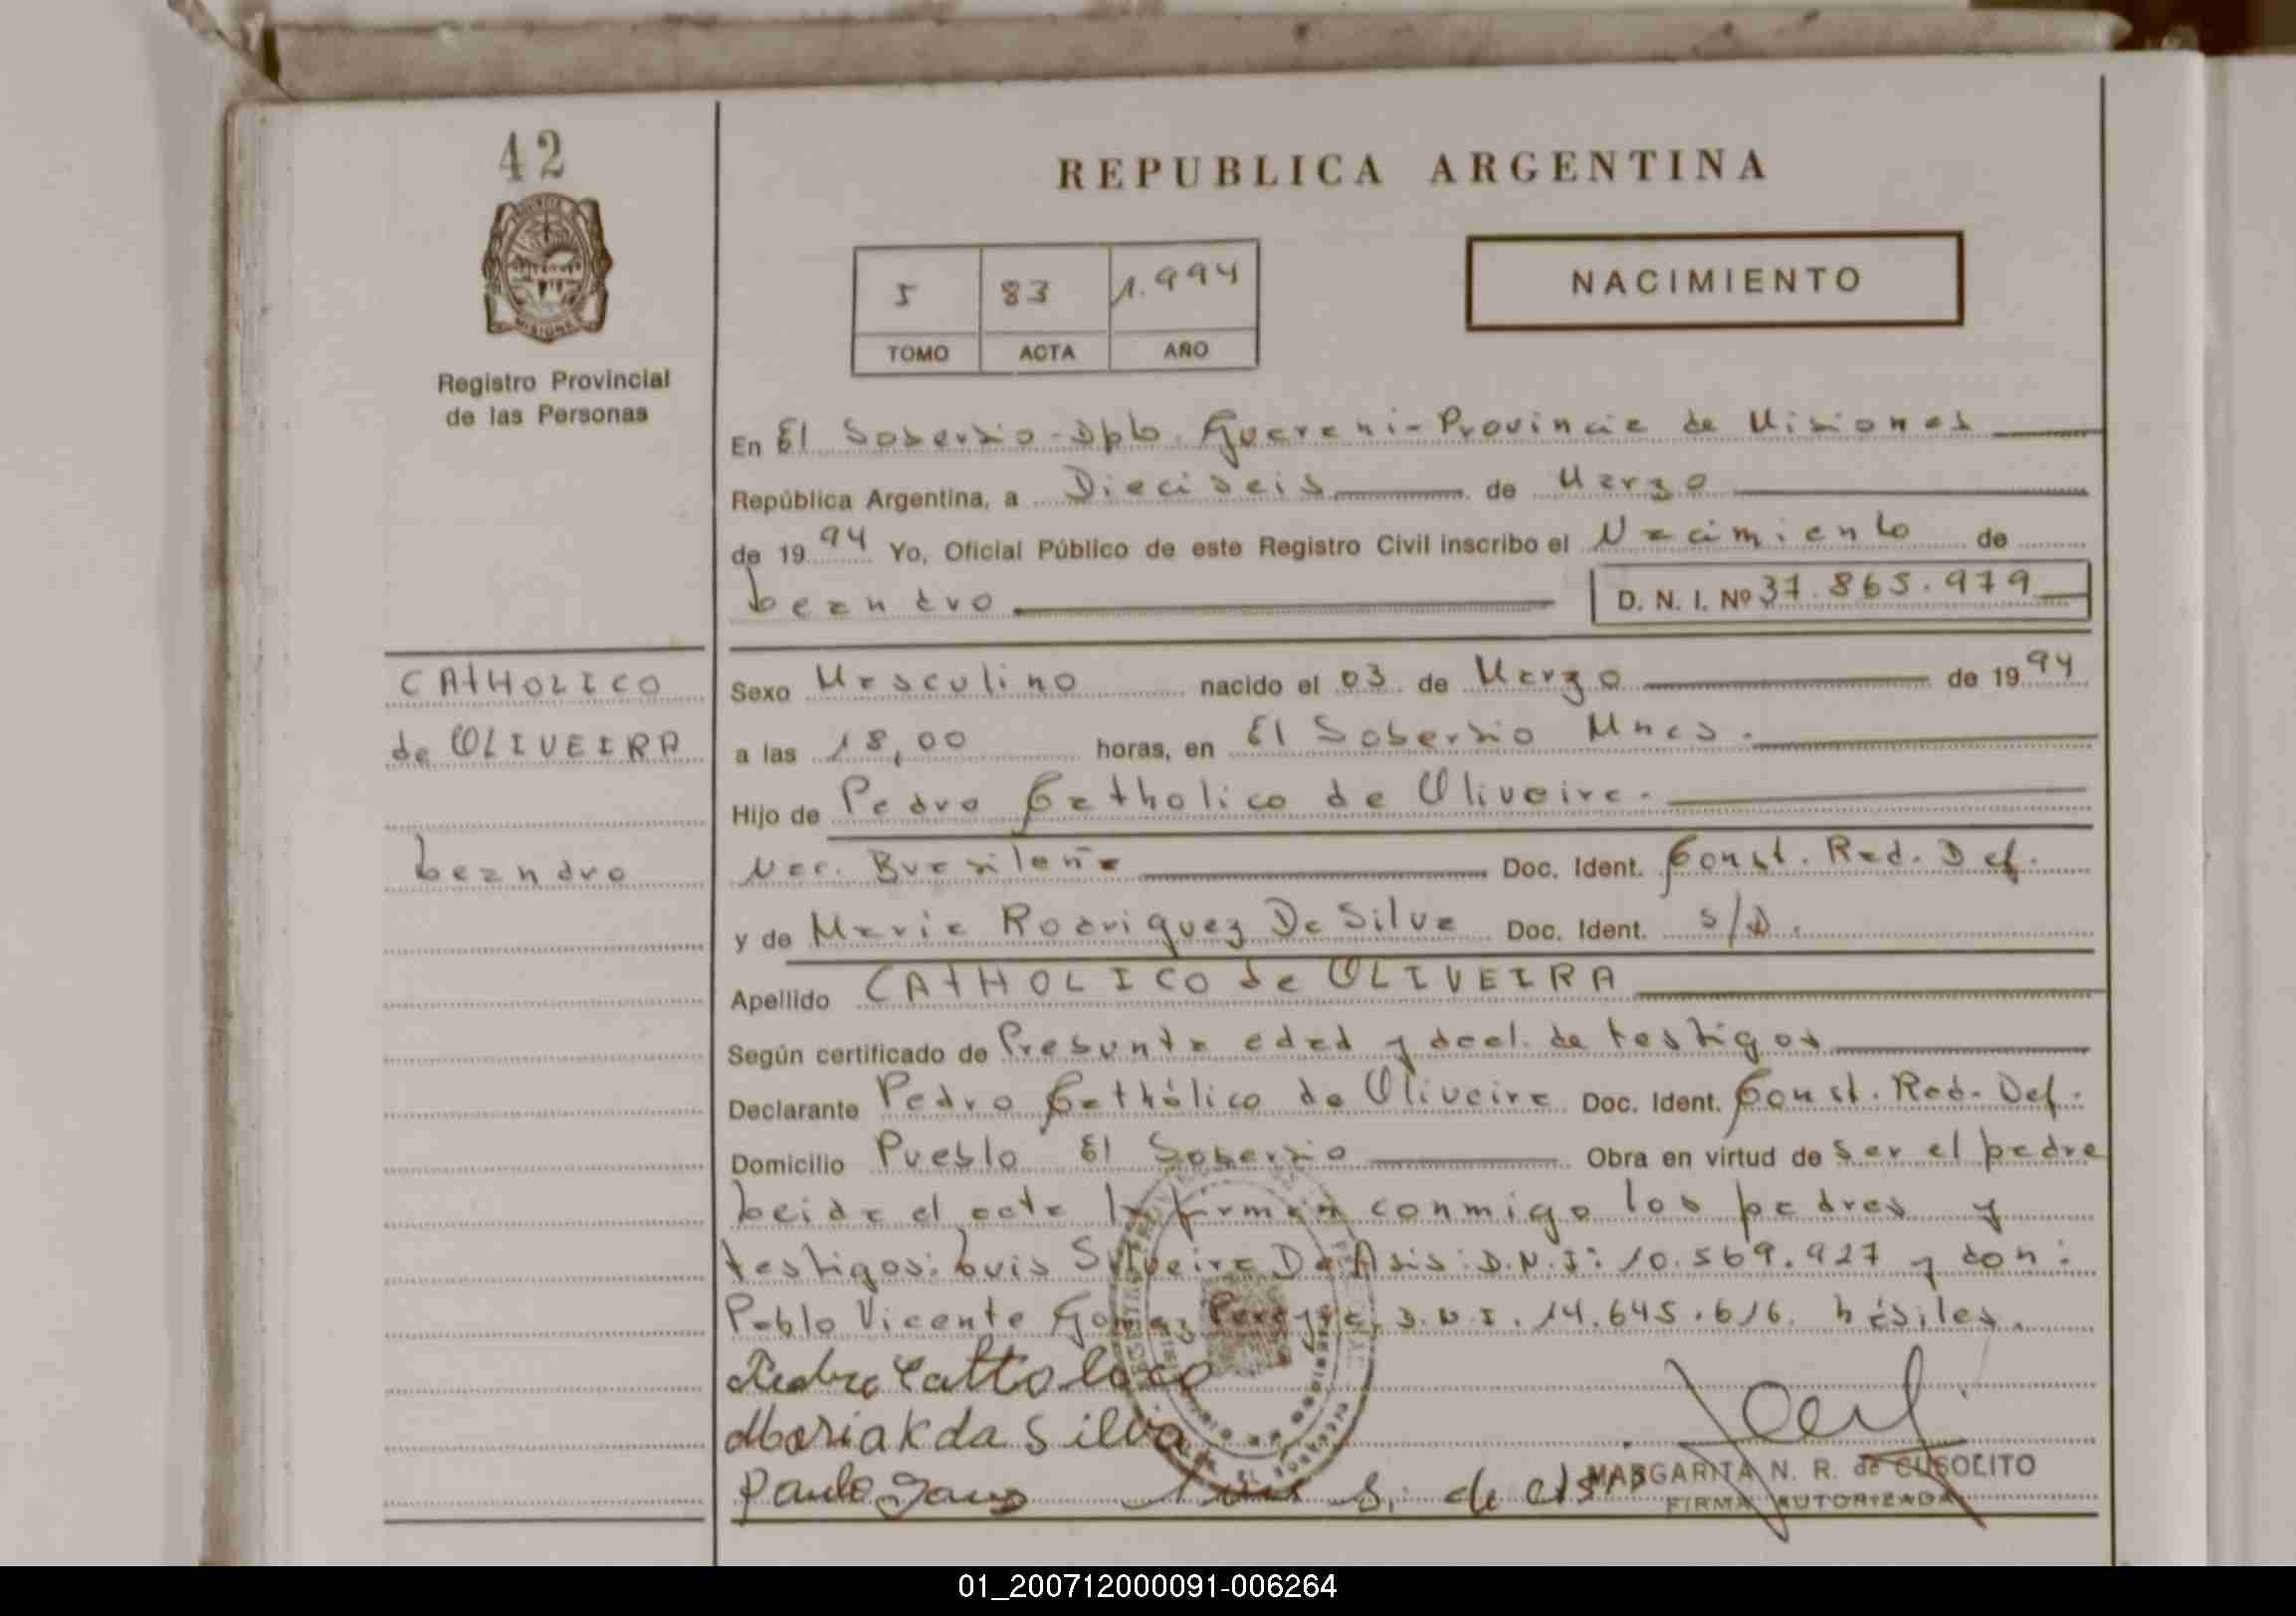 42
REPUBLICA ARGENTINA
PROVINCIA DE
MISIONES
Registro Provincial
de las Personas
5 83 1.994
TOMO ACTA AÑO
NACIMIENTO
En El Soberbio-Dpto. Guarani-Provincia de Misiones
República Argentina, a Dieciseis de Marzo
de 1994 Yo, Oficial Público de este Registro Civil inscribo el Nacimiento de
Leandro D. N. I. Nº 37.865.979
CATHOLICO
de OLIVEIRA
Leandro
Sexo Masculino nacido el 03 de Marzo de 1994
a las 18,00 horas, en El Soberbio Mnes.
Hijo de Pedro Catholico de Oliveira.
Nac. Brasileña Doc. Ident. Const. Rad. Def.
y de Maria Rodriguez Da Silva Doc. Ident. S/D.
Apellido CATHOLICO de OLIVEIRA
Según certificado de Presunta edad y decl. de testigos
Declarante Pedro Cathólico de Oliveira Doc. Ident. Const. Rad. Def.
Domicilio Pueblo El Soberbio Obra en virtud de ser el padre
Leida el acta la firman conmigo los padres y
testigos: Luis Silveira De Asis: D.N.I: 10.569.927 y don:
Pablo Vicente Gomez Pereyra, D.N.I. 14.645.616. hábiles.
Pedro Cattolico
Maria K da Silva
S. de
MARGARITA N. R. de CUSOLITO
FIRMA AUTORIZADA
01_200712000091-006264